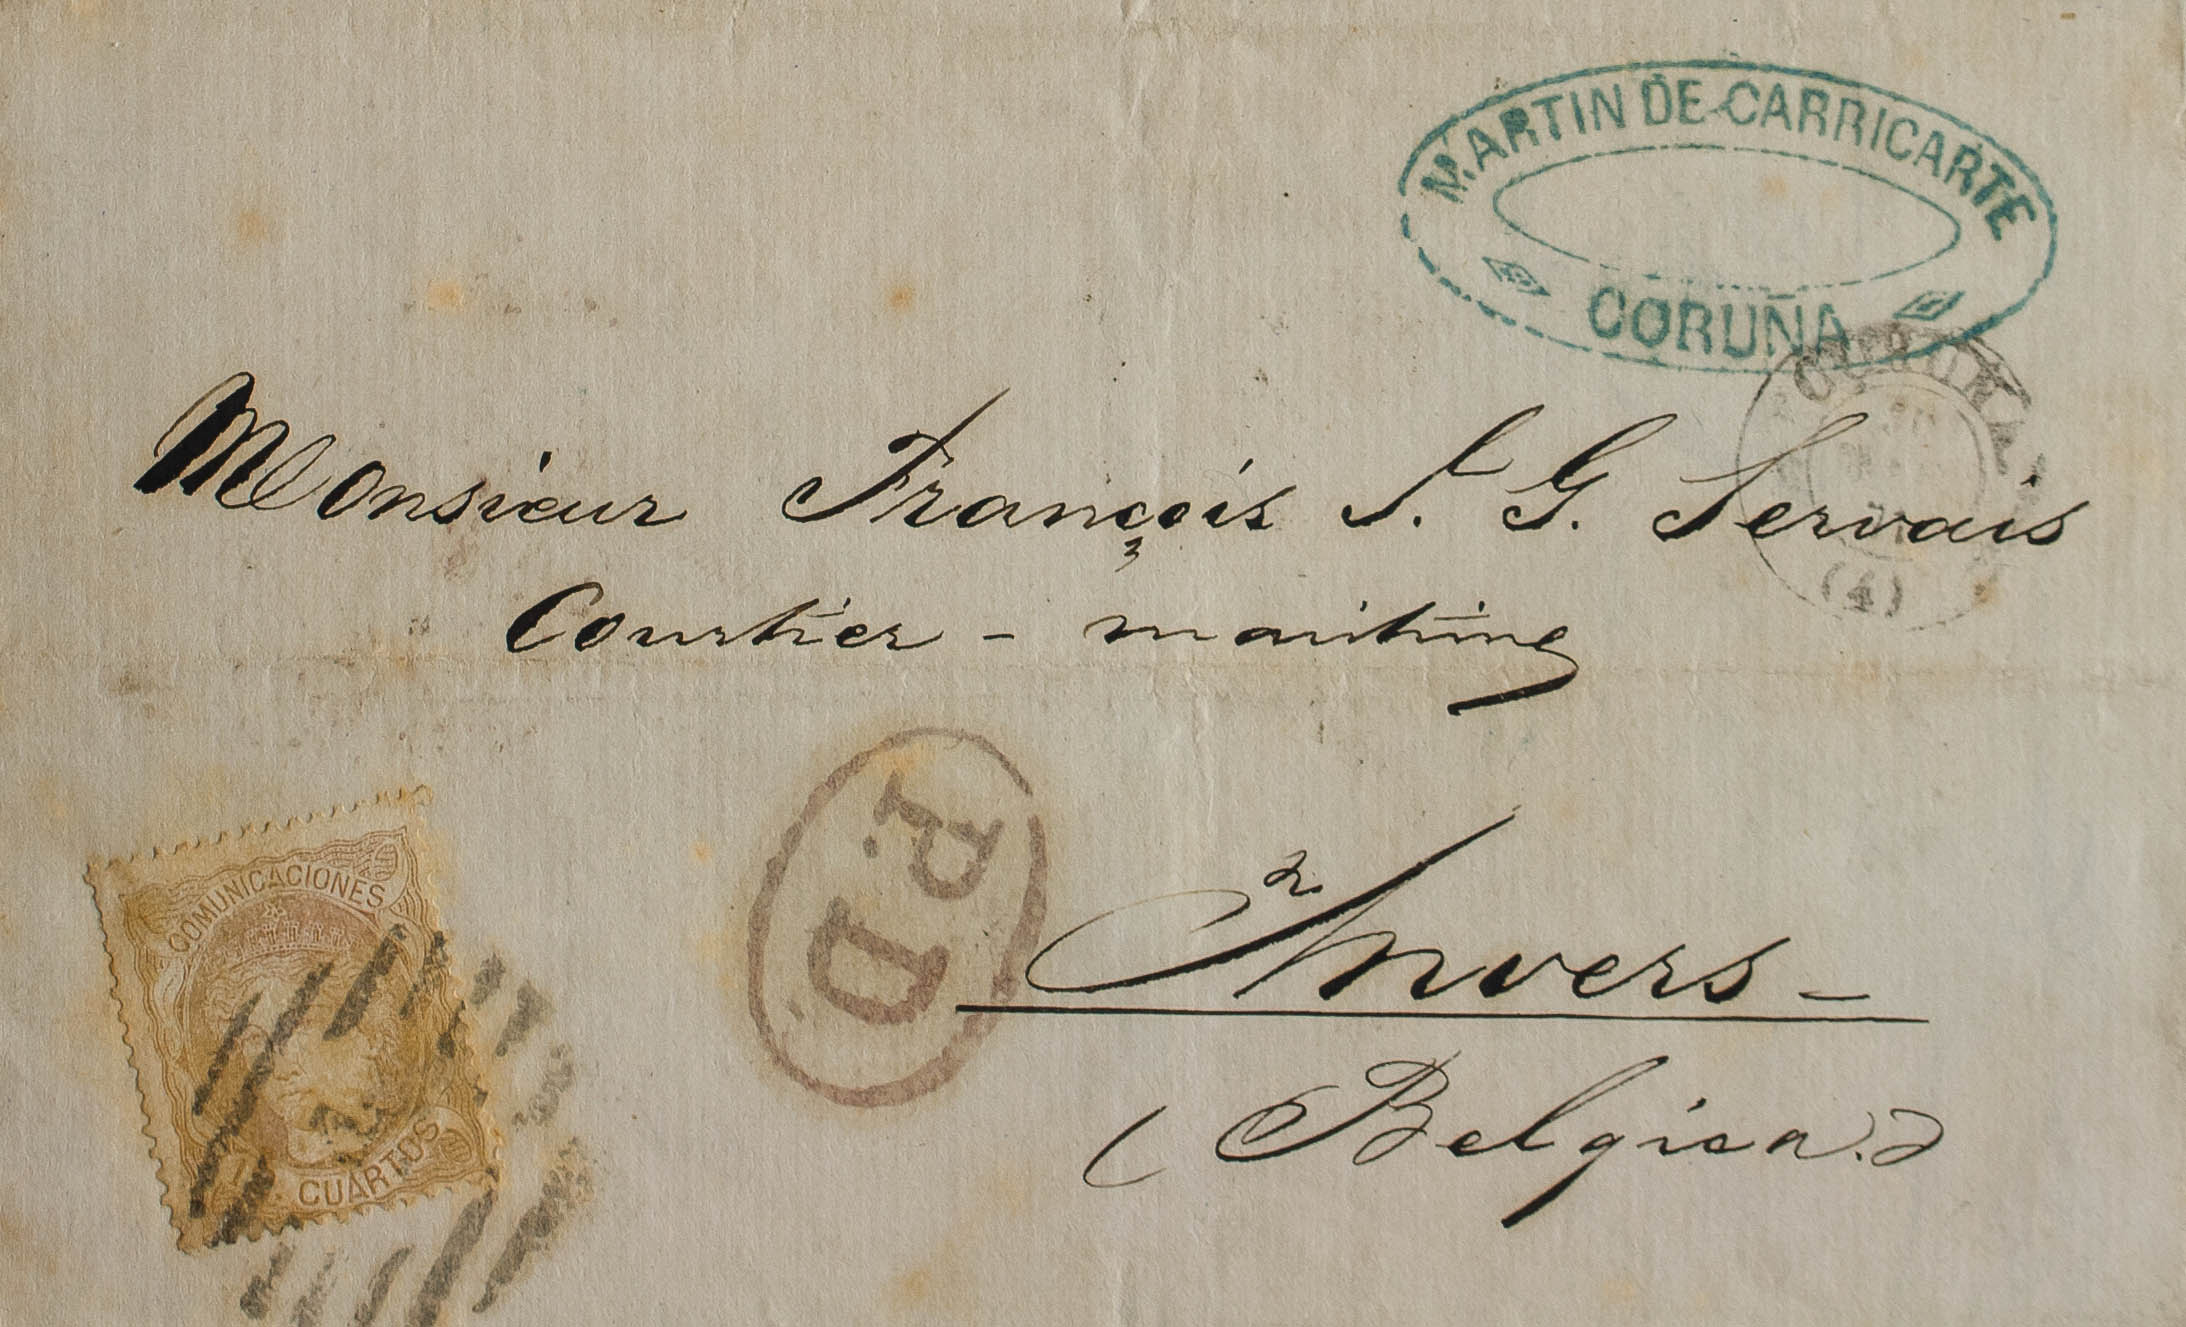 MARTIN DE CARRICARTE
CORUÑA
(4)
Monsieur François S. G. Servais
Courtier - maritime
P.D
Anvers -
(Belgica.)
COMUNICACIONES
CUARTOS